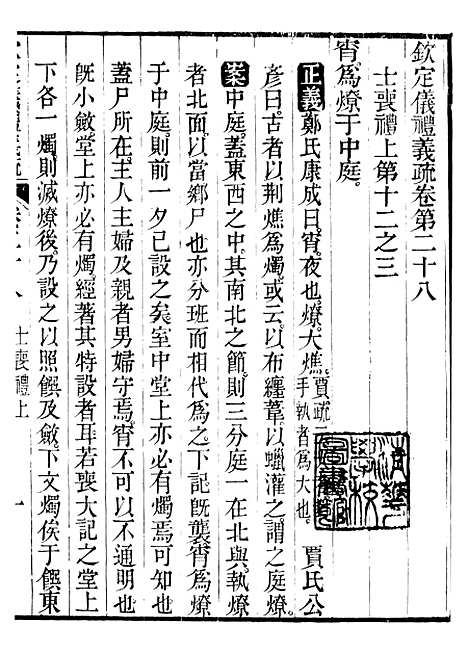 欽定儀禮義疏卷第二十八
士喪禮上第十二之三
宵爲燎于中庭
正義鄭氏康成曰宵夜也燎大燋賈疏
手執者爲大也 賈氏公
彥曰古者以荆燋爲燭或云以布纏葦以蠟灌之謂之庭燎
案中庭蓋東西之中其南北之節則三分庭一在北與執燎
者北面以當鄉尸也亦分班而相代爲之下記旣襲宵爲燎
于中庭則前一夕已設之矣室中堂上亦必有燭焉可知也
蓋尸所在主人主婦及親者男婦守焉宵不可以不通明也
旣小斂堂上亦必有燭經著其特設者耳若喪大記之堂上
下各一燭則滅燎後乃設之以照饌及斂下文燭俟于饌東
士喪禮上
一